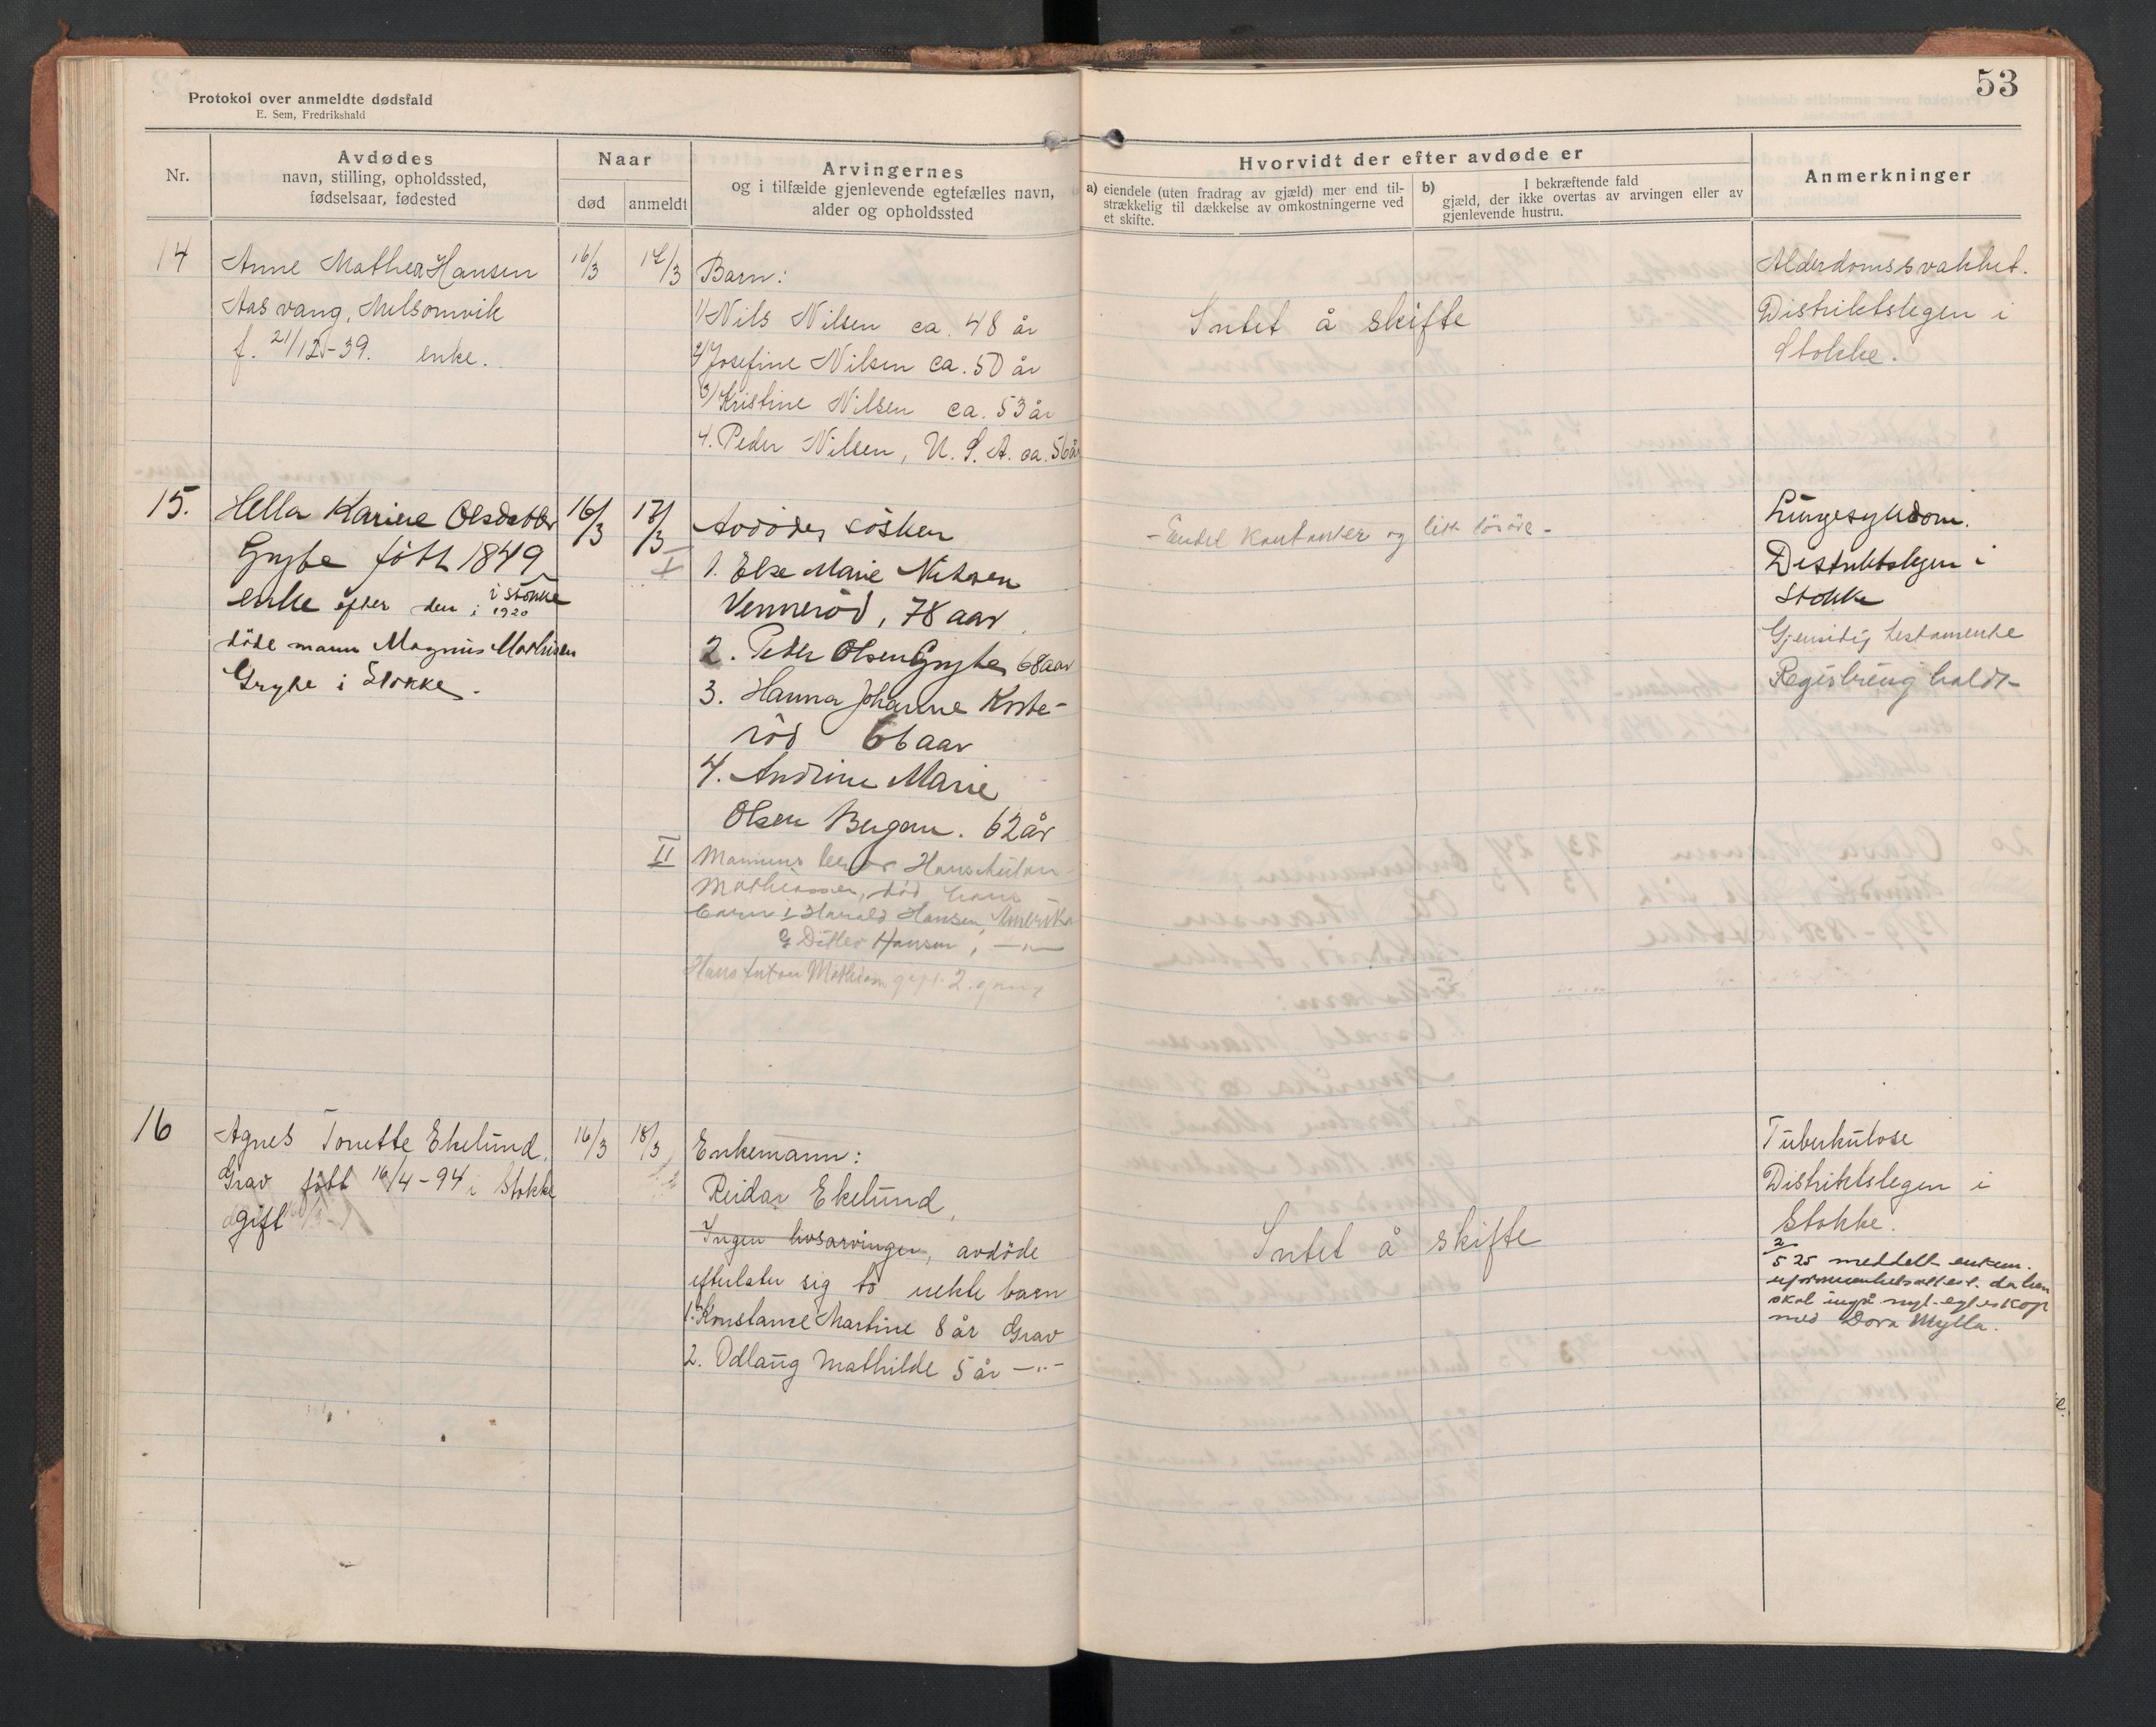 53
Protokol over anmeldte dødsfald
E. Sem, Fredrikshald
Nr.
Avdødes
navn, stilling, opholdssted,
fødselsaar, fødested
Naar
død
anmeldt
Arvingernes
og i tilfælde gjenlevende egtefælles navn,
alder og opholdssted
Hvorvidt der efter avdøde er
a) eiendele (uten fradrag av gjæld) mer end til-
strækkelig til dækkelse av omkostningerne ved
et skifte.
b) I bekræftende fald
gjæld, der ikke overtas av arvingen eller av
gjenlevende hustru.
Anmerkninger
14
Anne Mathea Hansen
Aasvang, Melsomvik
f. 21/12-39. enke.
16/3
17/3
Barn:
1) Nils Nilsen ca. 48 år
2) Josefine Nilsen ca. 50 år
3) Kristine Nilsen ca. 53 år
4. Peder Nilsen, U.S.A. ca. 56 år
Intet å skifte
Alderdomssvakhet.
Distriktslegen i
Stokke.
15.
Hella Karine Olsdatter
Grytte født 1849
i Stokke
enke efter den i 1920
døde mann Magnus Mathisen
i Stokke.
16/3
17/3
I
Avdødes søsken
1. Else Marie
Vennerød, 78 aar
2. Peder Olsen 68 aar
3. Hanna Johanne Korte-
rød 66 aar
4. Andrine Marie
Olsen Bergan. 62 år
II
Hans Anton
Mathiassen, død, hans
barn 1 Harald Hansen Amerika
2 Ditlev Hansen, —"—
Hans Anton gift 2. gang
- Endel kontanter og litt løsøre -
Lungesykdom.
Distriktslegen i
Stokke
Gjensidig testamente
Registrering holdt
16
Agnes Tonette Ekelund,
Grav født 16/4-94 i Stokke
gift
16/3
18/3
Enkemann:
Reidar Ekelund,
Ingen livsarvinger, avdøde
efterlater sig to uekte barn
1. Konstance Martine 8 år Grav
2. Odlaug Mathilde 5 år —"—
Intet å skifte
Tuberkulose
Distriktslegen i
Stokke.
2/5 25 meddelt enkem.
uformuenhetsattest. da han
skal ingå nyt egteskap
med Dora Mylla.